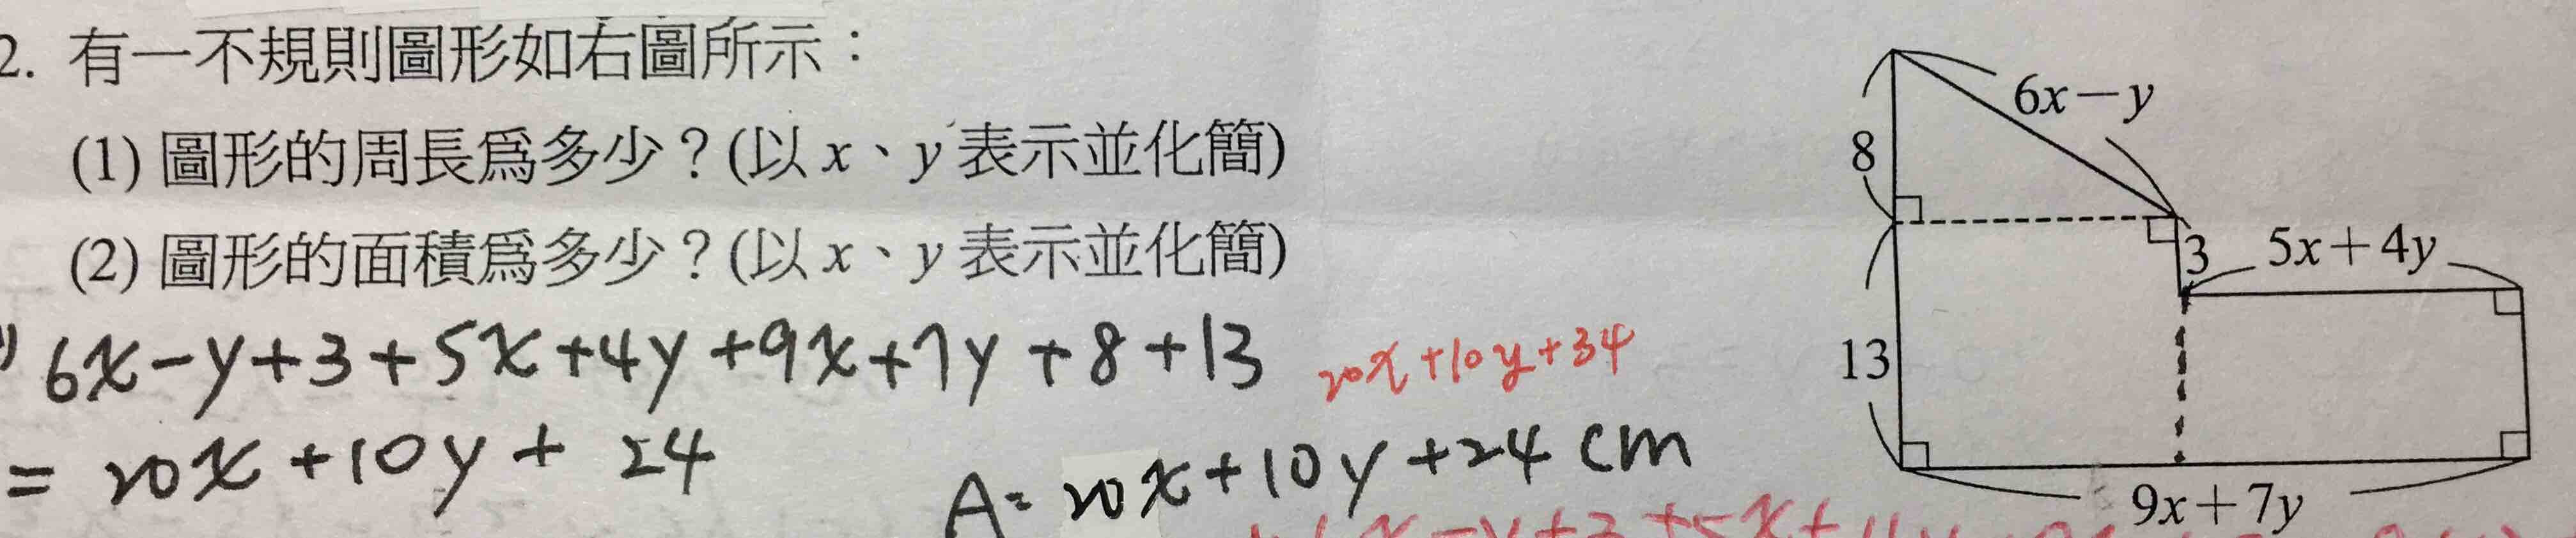 2. 有一不規則圖形如右圖所示：
(1) 圖形的周長為多少？(以 x、y 表示並化簡)
(2) 圖形的面積為多少？(以 x、y 表示並化簡)
6x-y+3+5x+4y+9x+7y+8+13
20x+10y+34
= 20x+10y+24
A= 20x+10y+24 cm
6x－y
8
3
5x＋4y
13
9x＋7y